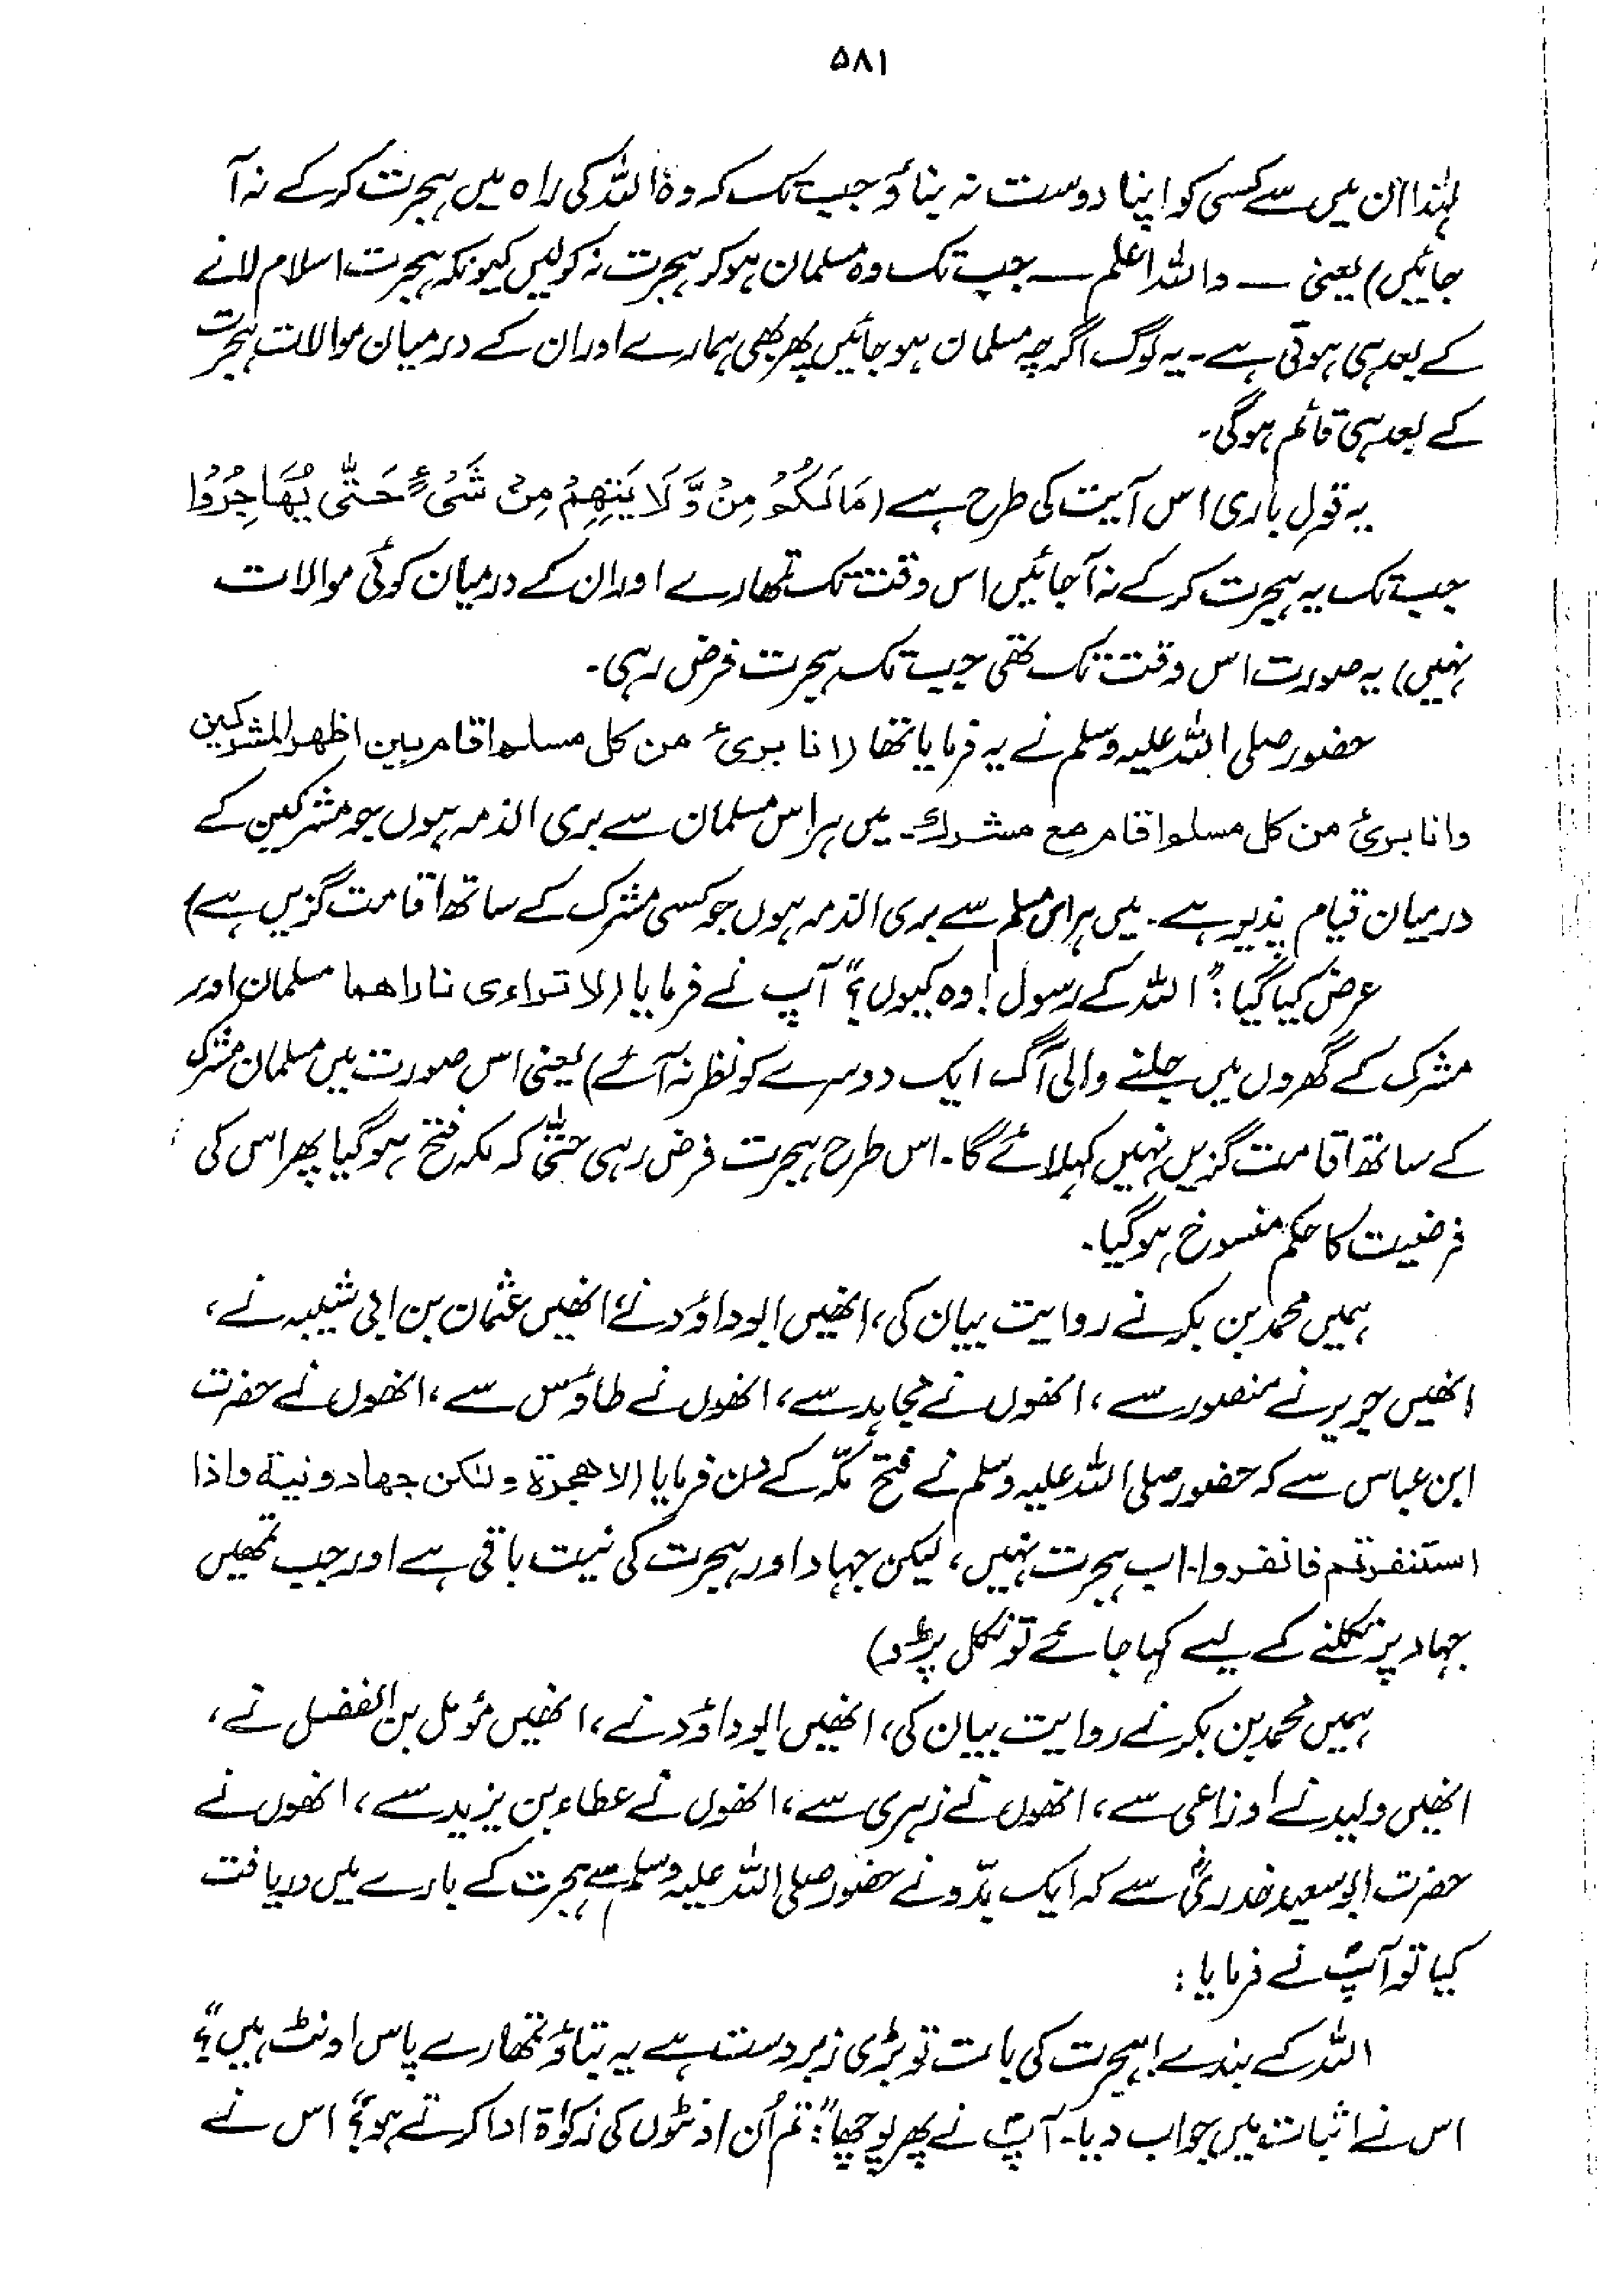 ۵۸۱
لہٰذا ان میں سے کسی کو اپنا دوست نہ بناؤ جب تک کہ وہ اللہ کی راہ میں ہجرت کرکے نہ آ
جائیں) یعنی — واللہ اعلم — جب تک وہ مسلمان ہو کر ہجرت نہ کرلیں کیونکہ ہجرت اسلام لانے
کے بعد ہی ہوتی ہے۔ یہ لوگ اگرچہ مسلمان ہو جائیں پھر بھی ہمارے اور ان کے درمیان موالات ہجرت
کے بعد ہی قائم ہوگی۔
یہ قول باری اس آیت کی طرح ہے (مَا لَكُمْ مِنْ وَّلَا يَتِهِمْ مِنْ شَيْءٍ حَتّٰى يُهَاجِرُوْا
جب تک یہ ہجرت کرکے نہ آجائیں اس وقت تک تمہارے اور ان کے درمیان کوئی موالات
نہیں) یہ صورت اس وقت تک تھی جب تک ہجرت فرض رہی۔
حضور صلی اللہ علیہ وسلم نے یہ فرمایا تھا (انا بریٔ من کل مسلم اقام بین اظهر المشرکین
وانا بریٔ من کل مسلم اقام مع مشرك۔ میں ہر اس مسلمان سے بری الذمہ ہوں جو مشرکین کے
درمیان قیام پذیر ہے۔ میں ہر اس مسلم سے بری الذمہ ہوں جو کسی مشرک کے ساتھ اقامت گزیں ہے)
عرض کیا گیا: "اللہ کے رسول! وہ کیوں؟" آپ نے فرمایا (لا تراءی ناراهما مسلمان اور
مشرک کے گھروں میں جلنے والی آگ ایک دوسرے کو نظر نہ آئے) یعنی اس صورت میں مسلمان مشرک
کے ساتھ اقامت گزیں نہیں کہلائے گا۔ اس طرح ہجرت فرض رہی حتیٰ کہ مکہ فتح ہوگیا پھر اس کی
فرضیت کا حکم منسوخ ہوگیا۔
ہمیں محمد بن بکر نے روایت بیان کی، انھیں ابو داؤد نے، انھیں عثمان بن ابی شیبہ نے،
انھیں جریر نے منصور سے، انھوں نے مجاہد سے، انھوں نے طاؤس سے، انھوں نے حضرت
ابن عباس سے کہ حضور صلی اللہ علیہ وسلم نے فتح مکّہ کے دن فرمایا (لا هجرة ولكن جهاد ونية واذا
استنفرتم فانفروا۔ اب ہجرت نہیں، لیکن جہاد اور ہجرت کی نیت باقی ہے اور جب تمھیں
جہاد پر نکلنے کے لیے کہا جائے تو نکل پڑو)
ہمیں محمد بن بکر نے روایت بیان کی، انھیں ابو داؤد نے، انھیں مؤمل بن الفضل نے،
انھیں ولید نے اوزاعی سے، انھوں نے زہری سے، انھوں نے عطاء بن یزید سے، انھوں نے
حضرت ابو سعید خدریؓ سے کہ ایک بدّو نے حضور صلی اللہ علیہ وسلم سے ہجرت کے بارے میں دریافت
کیا تو آپؐ نے فرمایا:
اللہ کے بندے! ہجرت کی بات تو بڑی زبردست ہے یہ بتاؤ تمھارے پاس اونٹ ہیں؟"
اس نے اثبات میں جواب دیا۔ آپؐ نے پھر پوچھا: "تم اُن اونٹوں کی زکوٰۃ ادا کرتے ہو؟" اس نے